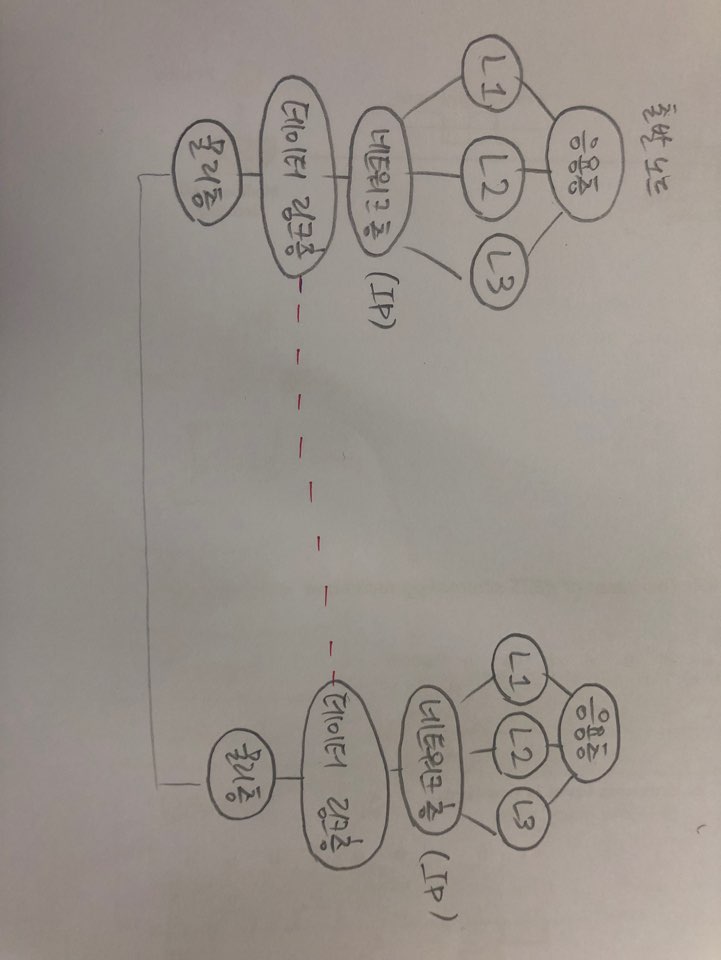 출발 노드
응용층
L1
L2
L3
네트워크 층
(IP)
데이터 링크층
물리층
응용층
L1
L2
L3
네트워크 층
(IP)
데이터 링크층
물리층